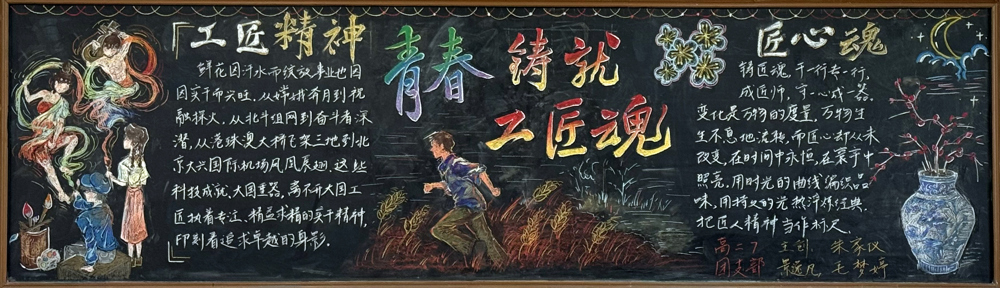 工匠精神
鲜花因汗水而绽放,事业也因
因实干而兴旺。从嫦娥奔月到祝
融探火,从北斗组网到奋斗者深
潜,从港珠澳大桥飞架三地到北
京大兴国际机场凤凰展翅,这些
科技成就、大国重器,离不开大国工
匠执着专注、精益求精的实干精神,
印刻着追求卓越的身影。
青春铸就
工匠魂
匠心魂
铸匠魂,于一行专一行,
成匠师,守一心成一器。
变化是万物的度量,万物生
生不息地流转,而匠心却从未
改变,在时间中永恒,在寰宇中
照亮,用时光的曲线编织品
味,用持之的光热淬炼经典,
把匠人精神当作标尺。
高二7
团支部
毛梦婷